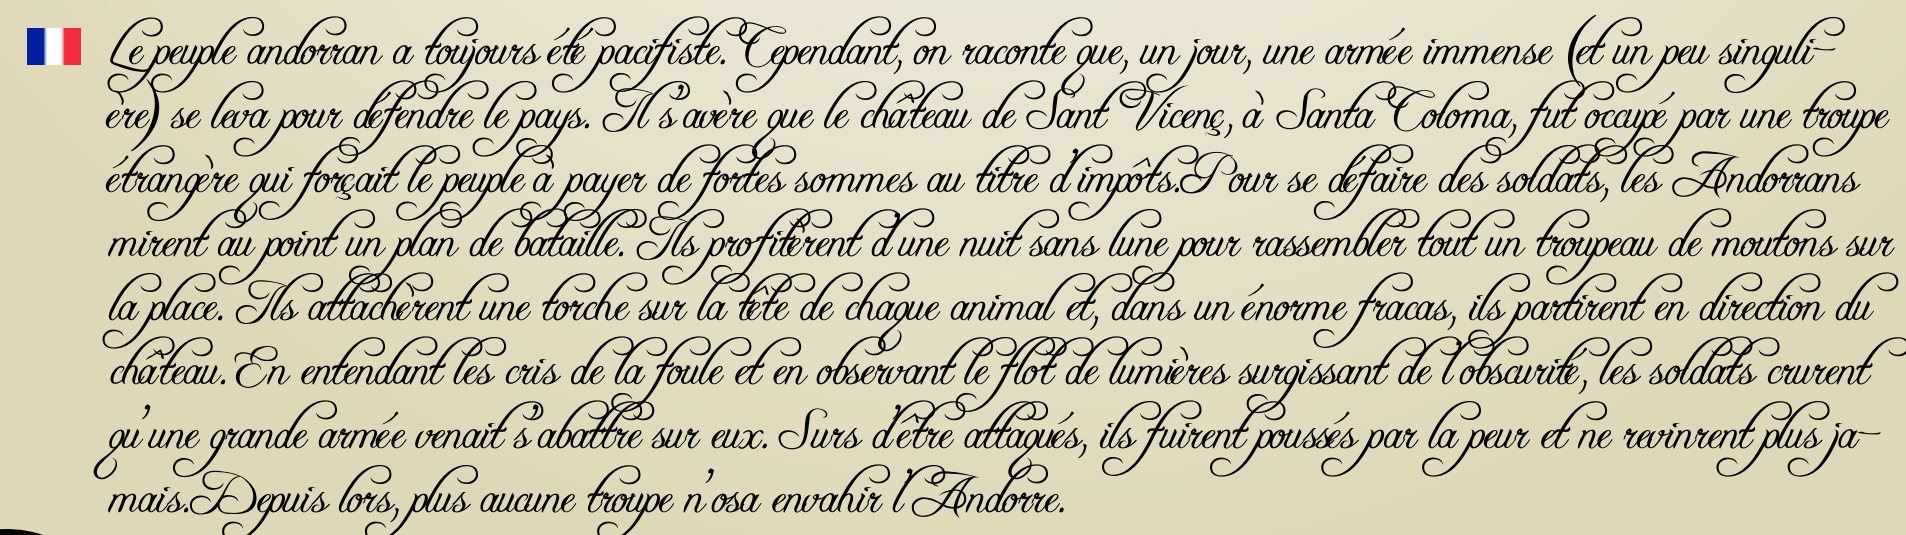 Le peuple andorran a toujours été pacifiste. Cependant, on raconte que, un jour, une armée immense (et un peu singuli-
ère) se leva pour défendre le pays. Il s'avère que le château de Sant Vicenç, à Santa Coloma, fut occupé par une troupe
étrangère qui forçait le peuple à payer de fortes sommes au titre d'impôts. Pour se défaire des soldats, les Andorrans
mirent au point un plan de bataille. Ils profitèrent d'une nuit sans lune pour rassembler tout un troupeau de moutons sur
la place. Ils attachèrent une torche sur la tête de chaque animal et, dans un énorme fracas, ils partirent en direction du
château. En entendant les cris de la foule et en observant le flot de lumières surgissant de l'obscurité, les soldats crurent
qu'une grande armée venait s'abattre sur eux. Surs d'être attaqués, ils fuirent poussés par la peur et ne revinrent plus ja-
mais. Depuis lors, plus aucune troupe n'osa envahir l'Andorre.